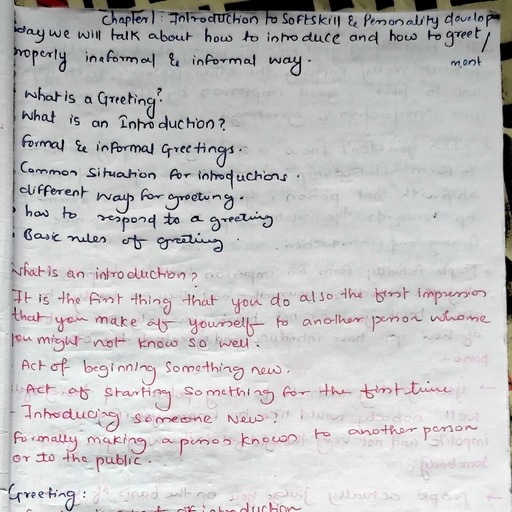 Chapter 1 : Introduction to Softskill & Personality develop
ment
day we will talk about how to introduce and how to greet /
roperly ina formal & informal way.
What is a Greeting?
What is an Introduction?
formal & informal Greetings.
Common Situation for introductions.
different ways for greeting.
how to respond to a greeting
Basic rules of greeting.
What is an introduction?
It is the first thing that you do also the first impression
that you make of yourself to another person whome
you might not know so well.
Act of beginning something new.
Act of starting something for the first time
- Introducing someone New?
formally making a person known to another person
or to the public.
Greeting:
introduction